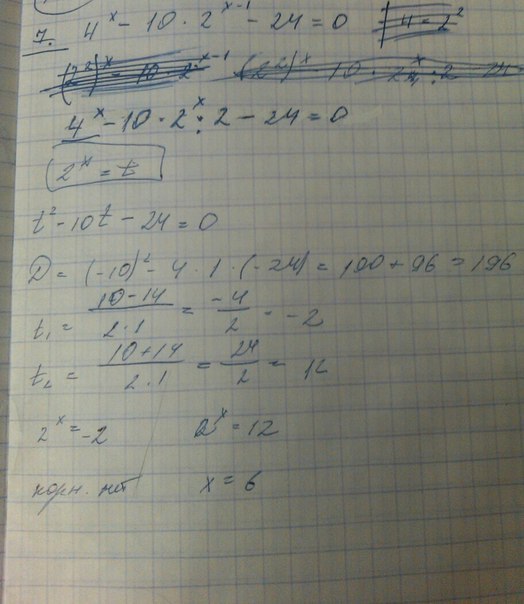 7. 4^x - 10 · 2^{x-1} - 24 = 0 | 4 = 2^2
(2^2)^x - 10 · 2^{x-1} (2^2)^x - 10 · 2^x : 2 - 24
4^x - 10 · 2^x : 2 - 24 = 0
2^x = t
t^2 - 10t - 24 = 0
D = (-10)^2 - 4 · 1 · (-24) = 100 + 96 = 196
t_1 = \frac{10-14}{2·1} = \frac{-4}{2} = -2
t_2 = \frac{10+14}{2·1} = \frac{24}{2} = 12
2^x = -2 2^x = 12
корн. нет x = 6